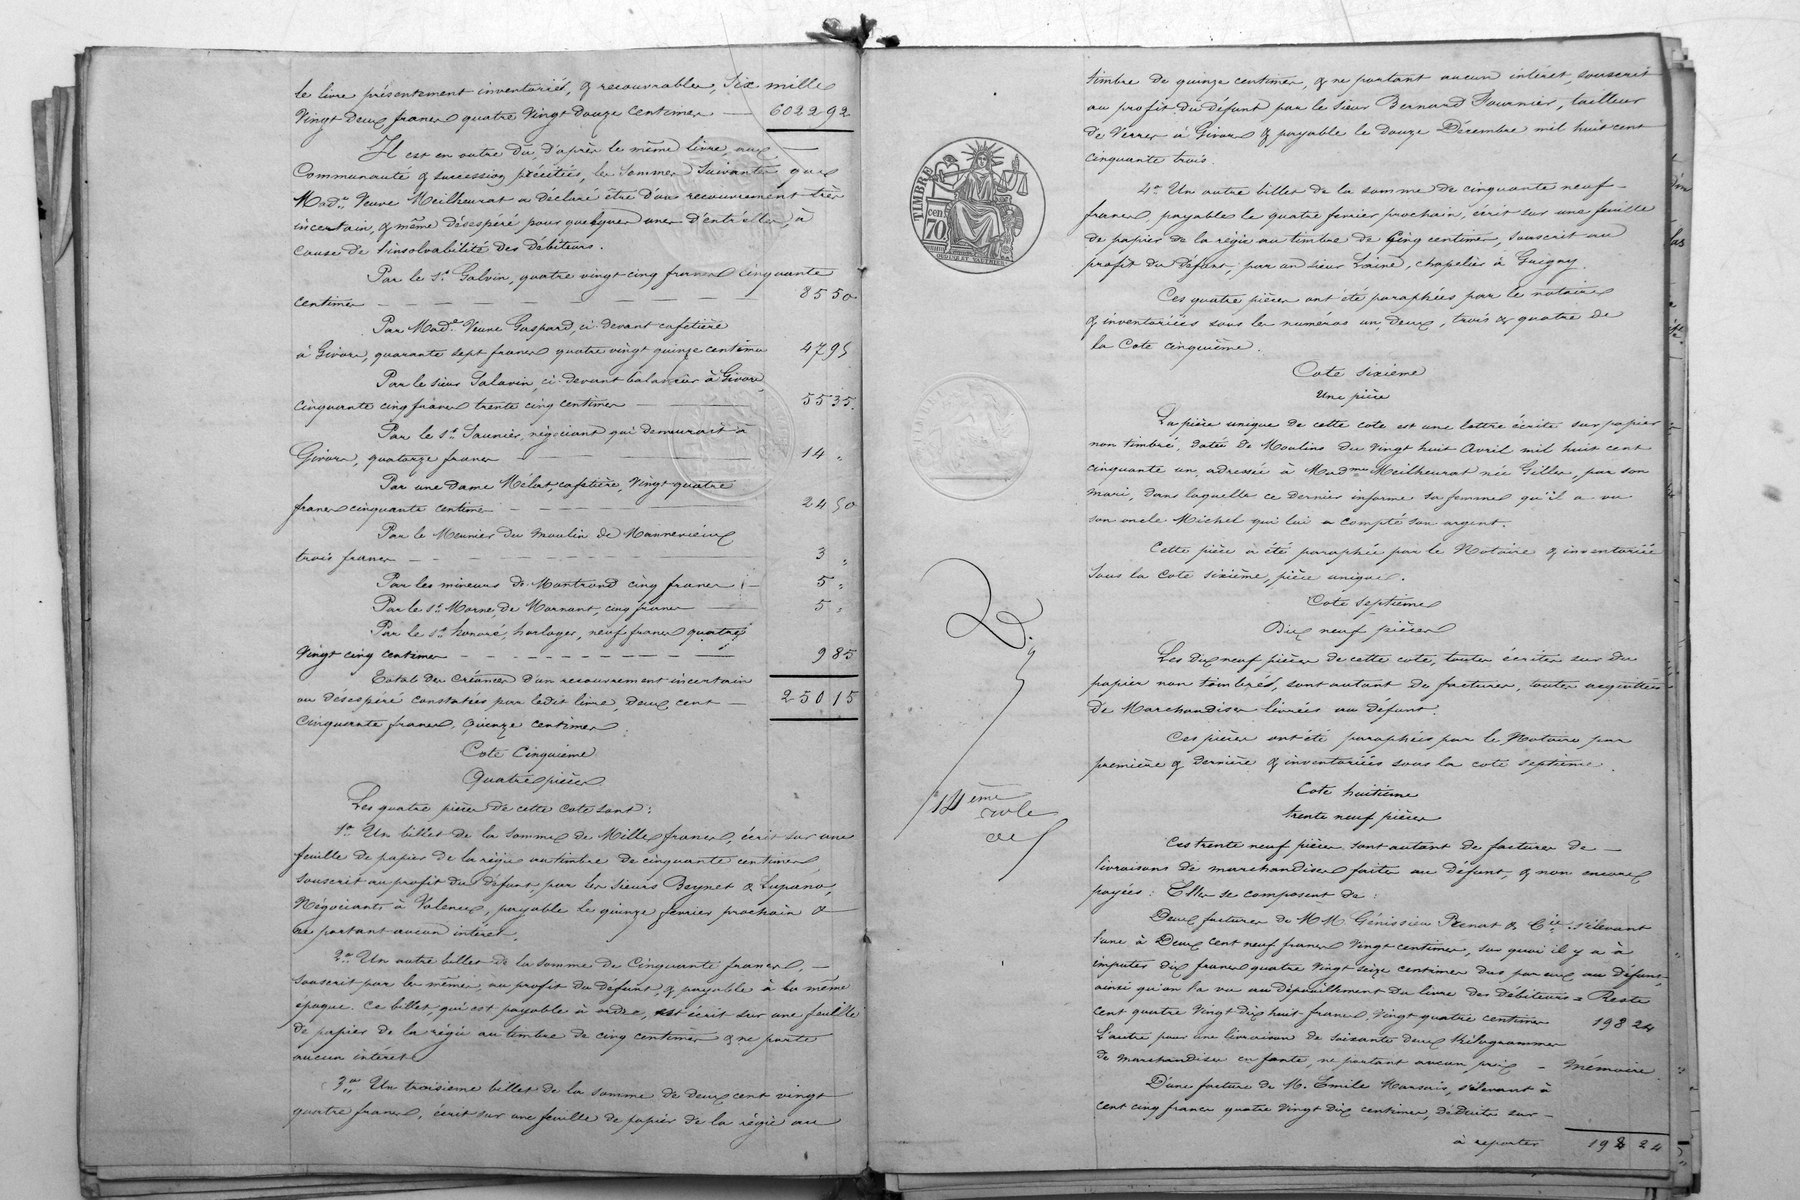 le livre présentement inventoriés, & recouvrables, Six mille
Vingt Deux francs quatre Vingt douze Centimes — 6022 92
Il est en outre dû, d'après le même livre, aux —
Communauté & succession précitées, les Sommes Suivantes, que
Made. Veuve Meilheurat a déclaré être d'un recouvrement très
incertain, & même désespéré pour quelques unes d'entr'elles, à
Cause de l'insolvabilité des débiteurs.
Par le Sr. Galvin, quatre vingt cinq francs Cinquante
centimes — 85 50
Par Made. Veuve Gaspard, ci-devant cafetière
à Givors, quarante sept francs quatre vingt quinze centimes 47 95
Par le sieur Salavin, ci-devant balancier à Givors,
Cinquante cinq francs trente cinq centimes — 55 35.
Par le Sr. Saunier, négociant qui demeurait à
Givors, quatorze francs — 14 "
Par une dame Mélat, cafetière, Vingt quatre
francs cinquante centimes — 24 50
Par le Meunier du Moulin de Mannevieux
trois francs — 3 "
Par les mineurs de Montrond cinq francs — 5 "
Par le Sr. Morne, de Mornant, cinq francs — 5 "
Par le Sr. honoré, horloger, neuf francs quatre
Vingt cinq centimes — 9 85
Total des Créances d'un recouvrement incertain
ou désespéré constatées par ledit livre, deux cent — 250 15
Cinquante francs, Quinze Centimes.
Cote Cinquième
Quatre pièces
Les quatre pièces de cette Cote sont :
1°. Un billet de la somme de Mille francs, écrit sur une
feuille de papier de la régie au timbre de cinquante centimes
souscrit au profit du défunt, par les sieurs Beynet &
Négociants à Valence, payable le quinze février prochain &
ne portant aucun intérêt.
2°. Un autre billet de la somme de Cinquante francs, —
souscrit par les mêmes, au profit du défunt, & payable à la même
époque. Ce billet, qui est payable à ordre, est écrit sur une feuille
de papier de la régie au timbre de cinq centimes & ne porte
aucun intérêt.
3°. Un troisième billet de la somme de deux cent vingt
quatre francs, écrit sur une feuille de papier de la régie au
TIMBRE
70 cen
14ème
role
timbre de quinze centimes, & ne portant aucun intérêt, souscrit
au profit du défunt par le sieur Bernard Fournier, tailleur
de Verres à Givors & payable le douze Décembre mil huit cent
cinquante trois.
4°. Un autre billet de la somme de cinquante neuf —
francs, payable le quatre fevrier prochain, écrit sur une feuille
de papier de la régie au timbre de Cinq centimes, souscrit au
profit du défunt, par un sieur Lainé, chapelier à Guigny.
Ces quatre pièces ont été paraphées par le notaire
& inventoriées sous les numéros un, deux, trois & quatre de
la Cote cinquième.
Cote sixième
Une pièce
La pièce unique de cette cote est une lettre écrite sur papier
non timbré, datée de Moulins du Vingt huit Avril mil huit cent
cinquante un, adressée à Madme Meilheurat née Gilles, par son
mari, dans laquelle ce dernier informe sa femme qu'il a vu
son oncle Michel qui lui a compté son argent.
Cette pièce a été paraphée par le Notaire & inventoriée
sous la Cote sixième, pièce unique.
Cote septième
Dix neuf pièces
Les dix neuf pièces de cette cote, toutes écrites sur du
papier non timbré, sont autant de factures, toutes acquittées
de Marchandises livrées au défunt.
Ces pièces ont été paraphées par le Notaire par
première & dernière & inventoriées sous la cote septième.
Cote huitième
trente neuf pièces
Ces trente neuf pièces sont autant de factures de —
livraisons de marchandises faites au défunt, & non encore
payées : Elles se composent de :
Deux factures de MM. Génissieu Pernat & Cie s'élevant
l'une à Deux cent neuf francs Vingt centimes, sur quoi il y a à
imputer dix francs quatre Vingt seize centimes dus par eux au défunt,
ainsi qu'on l'a vu au dépouillement du livre des débiteurs = Reste
Cent quatre Vingt Dix huit francs, Vingt quatre centimes 198 24
L'autre pour une livraison de soixante deux Kilogrammes
de marchandises en fonte, ne portant aucun prix — Mémoire.
D'une facture de M. Emile Marsais, s'élevant à
Cent cinq francs quatre Vingt dix centimes, déduits sur —
à reporter 198 24